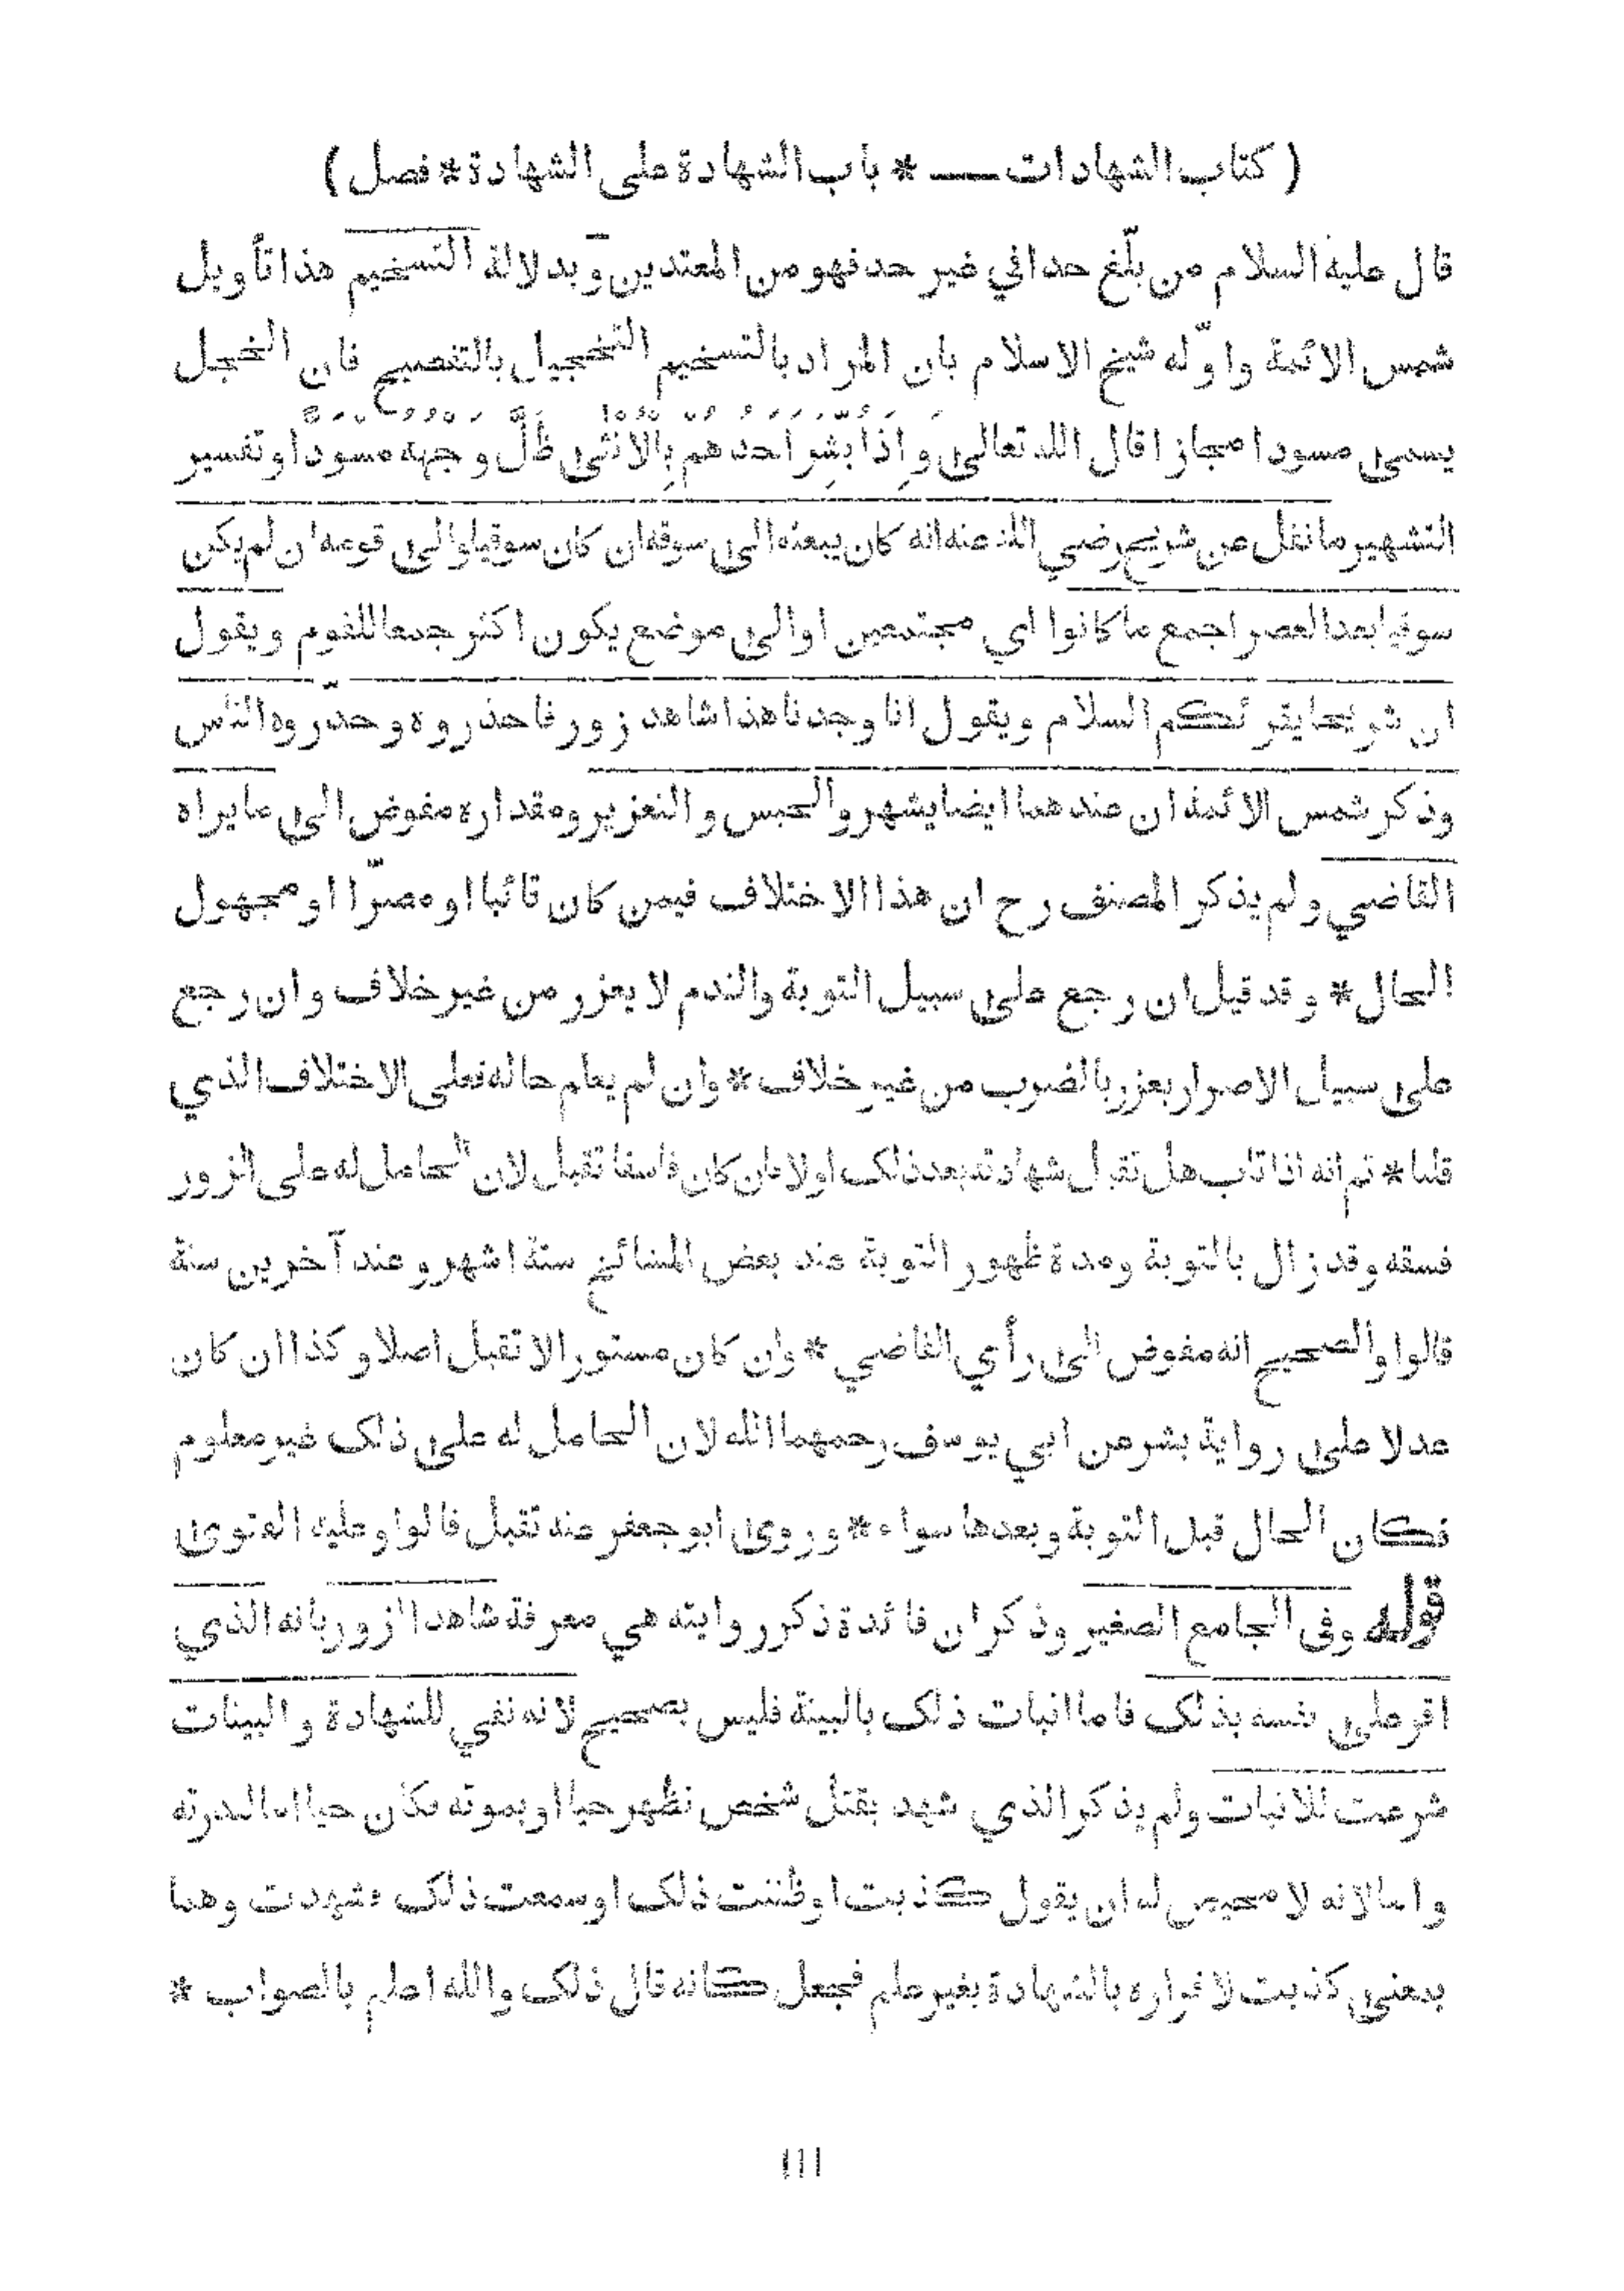 ( كتاب الشهادات ـــ * باب الشهادة على الشهادة * فصل )
قال عليه السلام من بلّغ حدا في غير حد فهو من المعتدين وبدلالة التسخيم هذا تأويل
شمس الائمة واوّله شيخ الاسلام بان المراد بالتسخيم التخجيل بالتفضيح فان الخجل
يسمى مسودا مجازا قال الله تعالى وَاِذَا بُشِّرَ اَحَدُهُمْ بِالْاُنْثٰى ظَلَّ وَجْهُهُ مُسْوَدًّا وتفسير
التشهير ما نقل عن شريح رضي الله عنه انه كان يبعثه الى سوقه ان كان سوقيا والى قومه ان لم يكن
سوقيا بعد العصر اجمع ما كانوا اي مجتمعين او الى موضع يكون اكثر جمعا للقوم ويقول
ان شريحا يقرئكم السلام ويقول انا وجدنا هذا شاهد زور فاحذروه وحذّروه الناس
وذكر شمس الائمة ان عندهما ايضا يشهر والحبس والتعزير ومقداره مفوض الى ما يراه
القاضي ولم يذكر المصنف رح ان هذا الاختلاف فيمن كان تائبا او مصرّا او مجهول
الحال * وقد قيل ان رجع على سبيل التوبة والندم لا يعزر من غير خلاف وان رجع
على سبيل الاصرار يعزر بالضرب من غير خلاف * وان لم يعلم حاله فعلى الاختلاف الذي
قلنا * ثم انه اذا تاب هل تقبل شهادته بعد ذلك او لا فان كان فاسقا تقبل لان الحامل له على الزور
فسقه وقد زال بالتوبة ومدة ظهور التوبة عند بعض المشائخ ستة اشهر وعند آخرين سنة
قالوا والصحيح انه مفوض الى رأي القاضي * وان كان مستورا لا تقبل اصلا وكذا ان كان
عدلا على رواية بشر عن ابي يوسف رحمهما الله لان الحامل له على ذلك غير معلوم
فكان الحال قبل التوبة وبعدها سواء * وروى ابو جعفر عنه تقبل قالوا وعليه الفتوى
قوله وفى الجامع الصغير وذكر ان فائدة ذكر روايته هي معرفة شاهد الزور بانه الذي
اقر على نفسه بذلك فاما اثبات ذلك بالبينة فليس بصحيح لانه نفي للشهادة والبينات
شرعت للاثبات ولم يذكر الذي شهد بقتل شخص نظهر حيا او بموته فكان حيا اما لندرته
واما لانه لا محيص له ان يقول كذبت او ظننت ذلك او سمعت ذلك فشهدت وهما
بمعنى كذبت لاقراره بالشهادة بغير علم فجعل كانه قال ذلك والله اعلم بالصواب *
١١١